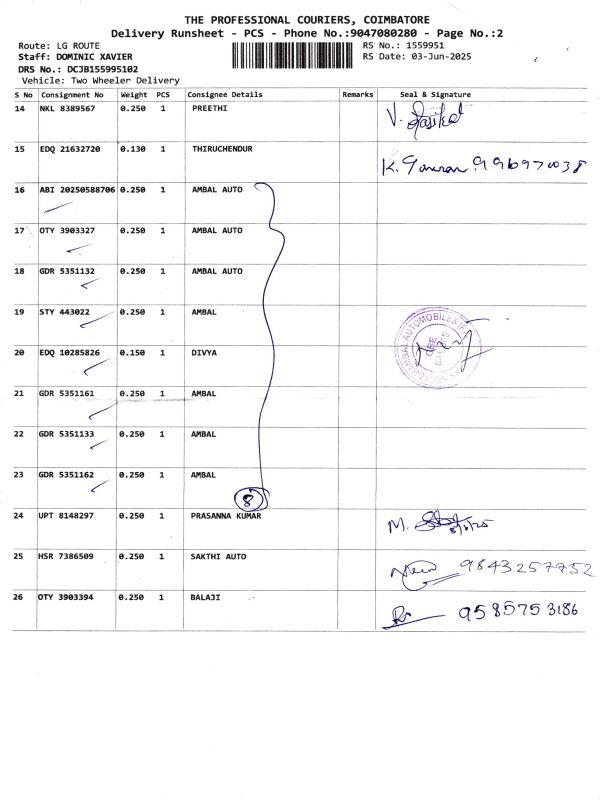 THE PROFESSIONAL COURIERS, COIMBATORE
Delivery Runsheet - PCS - Phone No.:9047080280 - Page No.:2
Route: LG ROUTE RS No.: 1559951
Staff: DOMINIC XAVIER RS Date: 03-Jun-2025
DRS No.: DCJB155995102
Vehicle: Two Wheeler Delivery
S No Consignment No Weight PCS Consignee Details Remarks Seal & Signature
14 NKL 8389567 0.250 1 PREETHI V.
15 EDQ 21632720 0.130 1 THIRUCHENDUR K.
16 ABI 20250588706 0.250 1 AMBAL AUTO
17 OTY 3903327 0.250 1 AMBAL AUTO
18 GDR 5351132 0.250 1 AMBAL AUTO
19 STY 443022 0.250 1 AMBAL
20 EDQ 10285826 0.150 1 DIVYA
21 GDR 5351161 0.250 1 AMBAL
22 GDR 5351133 0.250 1 AMBAL
23 GDR 5351162 0.250 1 AMBAL
8
24 UPT 8148297 0.250 1 PRASANNA KUMAR M.
25 HSR 7386509 0.250 1 SAKTHI AUTO 9843257752
26 OTY 3903394 0.250 1 BALAJI 9585753186